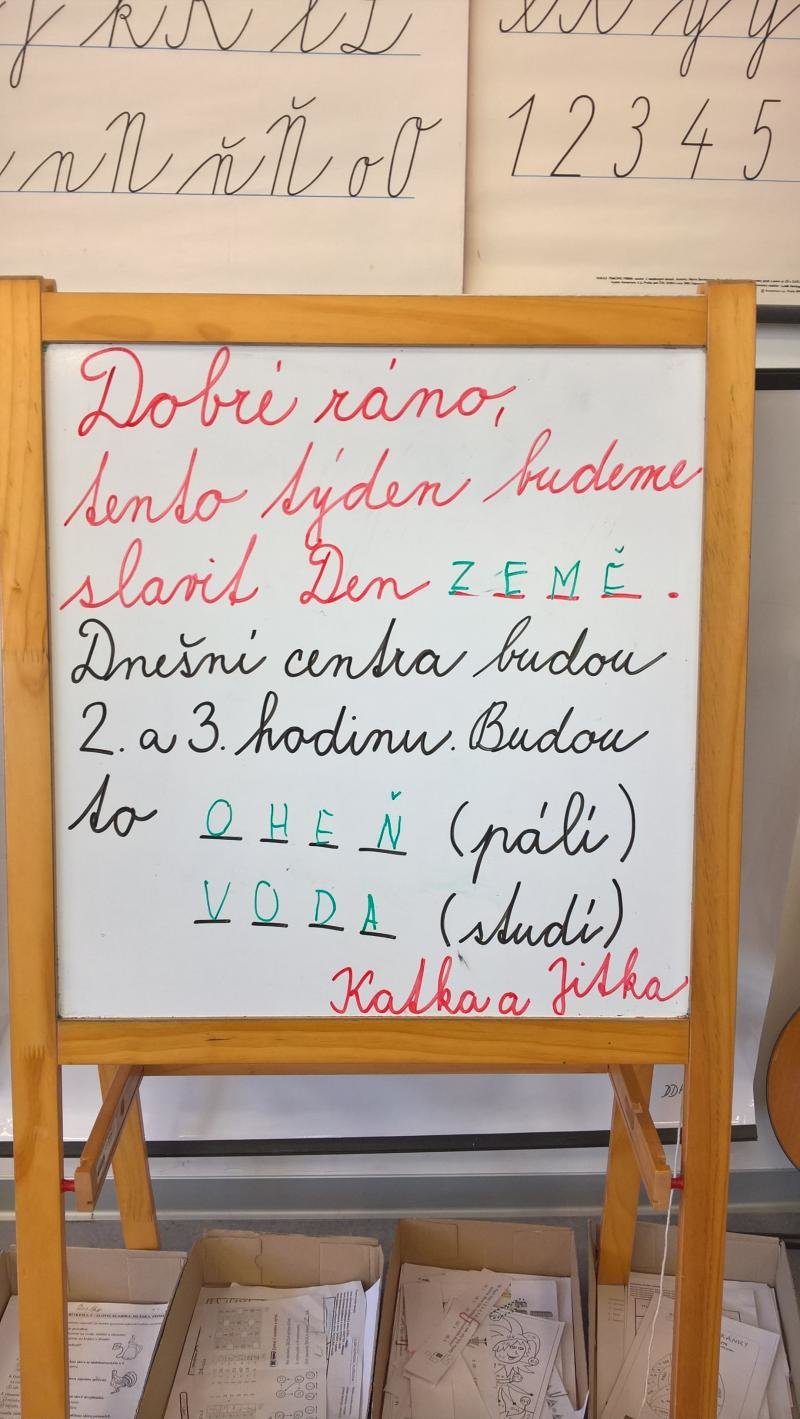 k K l L
n N ň Ň o O
1 2 3 4 5
Dobré ráno,
tento týden budeme
slavit Den ZEMĚ.
Dnešní centra budou
2. a 3. hodinu. Budou
to OHEŇ (pálí)
VODA (studí)
Katka a Jitka